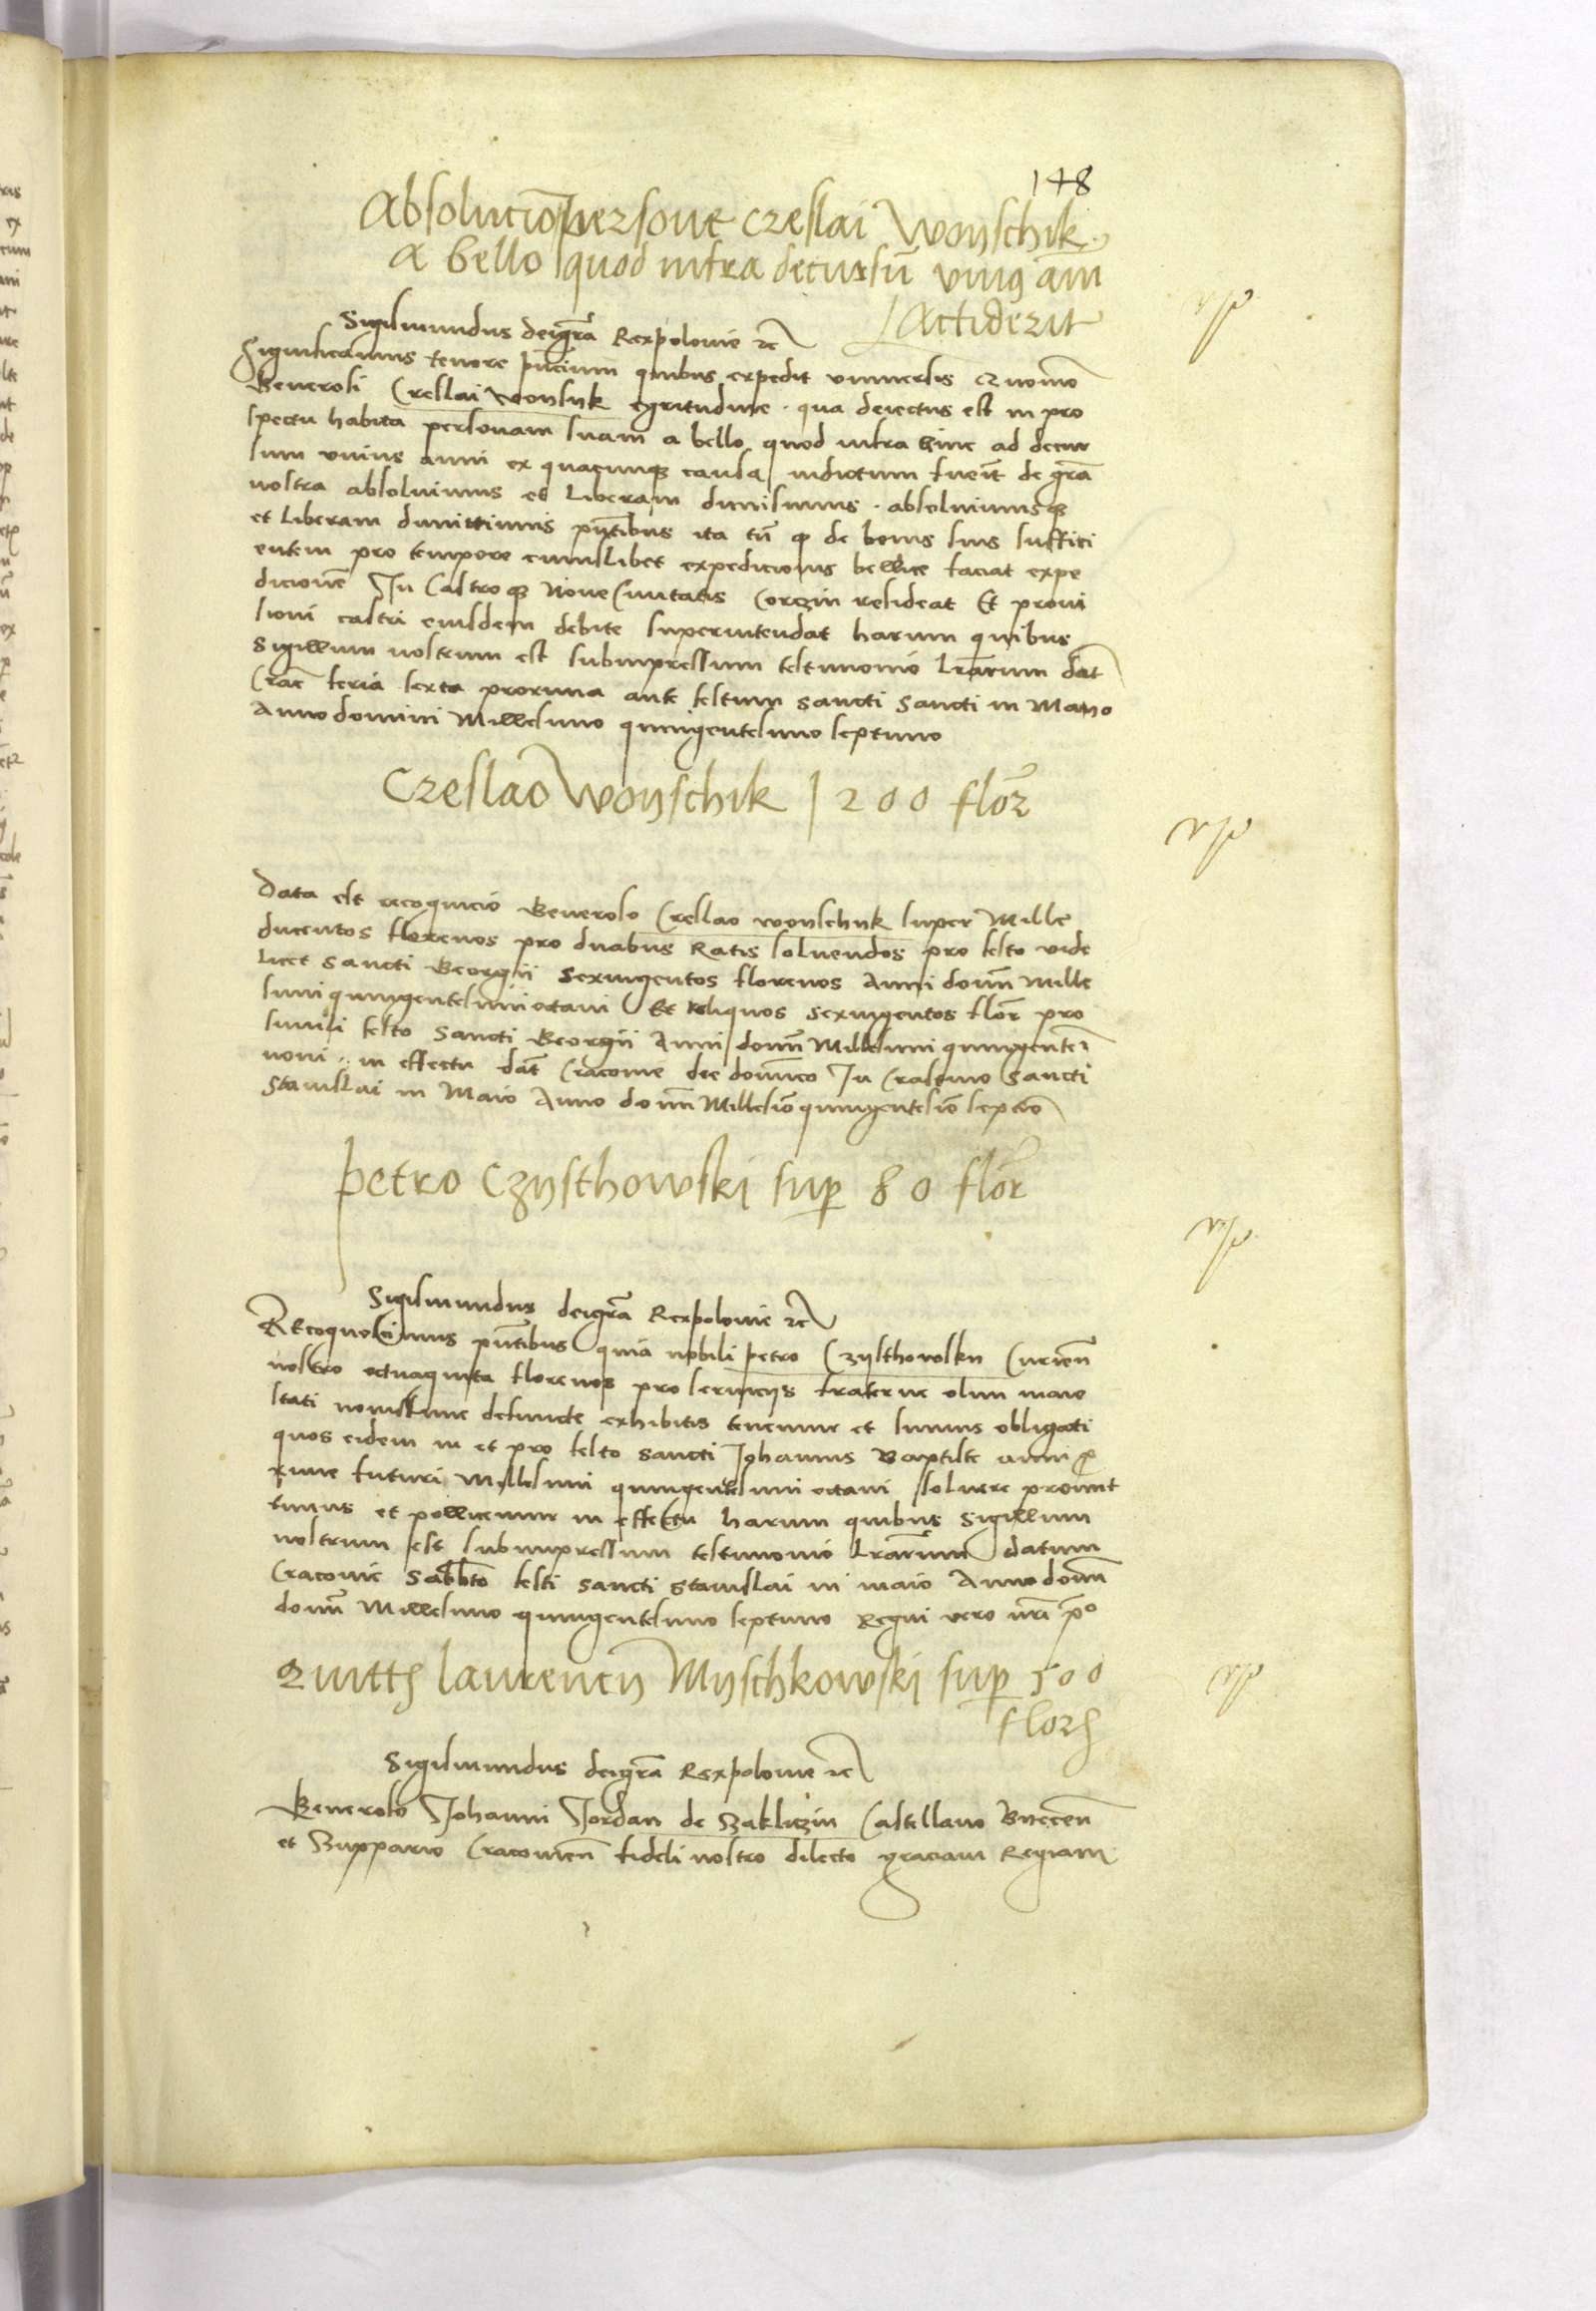 148
Absolucio persone Czeslai Woyschik
a bello quod infra decursū vniꝰ anni
acciderit
Sigismundus dei gr̄a Rex polonie ꝛc
Significamus tenore pn̄cium quibus expedit vniuersis Quomo
Generosi Creslai woysyk egritudine . qua deiectus est in pro
spectu habita personam suam a bello quod infra hinc ad decur
sum vnius anni ex quacunqꝫ causa indictum fuerit de gr̄a
nostra absoluimus et Liberam dimisimus . absoluimusqꝫ
et Liberam dimittimus pn̄tibus ita tn̄ qꝫ de bonis suis suffici
entem pro tempore cuiuslibet expedicionis bellice faciat expe
dicionē In Castroqꝫ Noue Ciuitatis Corczin resideat Et proui
sioni castri eiusdem debite superintendat harum quibus
Sigillum nostrum est subimpressum testimonio Lr̄arum dat̄
Crac̄ feria sexta proxima ante festum sancti Sancti in Mayo
Anno domini Millesimo quingentesimo septimo
Czeslao Woyschik 1200 flor̄
Data est recognicio Generoso Creslao woyschyk super Mille
ducentos florenos pro duabus Ratis soluendos pro festo vide
licet Sancti Georgii Sexingentos florenos Anni domī Mille
simi quingentesimi octaui Et reliquos sexingentos flor̄ pro
simili festo Sancti Georgii Anni domī Millesimi quingentesi
noni . in effectu dat̄ Cracouie die dominico In Crastino Sancti
Stanislai in Maio Anno domī Millesīo quingentesīo septīo
petro Czysthowski sup 80 flor̄
Sigismundus dei gr̄a Rex polonie ꝛc
Recognoscimus pn̄tibus quia nobili petro Czysthowsky Curien̄
nostro octuaginta florenos pro seruicys fraterne olim maie
stati nouissime defuncte exhibitis tenemur et sumus obligati
quos eidem in et pro festo Sancti Johannis Baptiste anni pro
xime futuri Millesimi quingentesimi octaui soluere promit
timus et pollicemur in effectu harum quibus Sigillum
nostrum est subimpressum testimonio Lr̄arum datum
Cracouie Sabbto festi sancti Stanislai in maio Anno domī
domī Millesimo quingentesimo septimo Regni vero nr̄i pº
Quitt laurency Myschkowski sup 500
flor
Sigismundus dei gr̄a Rex polonie ꝛc
Generoso Johanni Jordan de Zakliczin Castellano Biecen̄
et Zuppario Cracouien̄ fideli nostro dilecto graciam Regiam